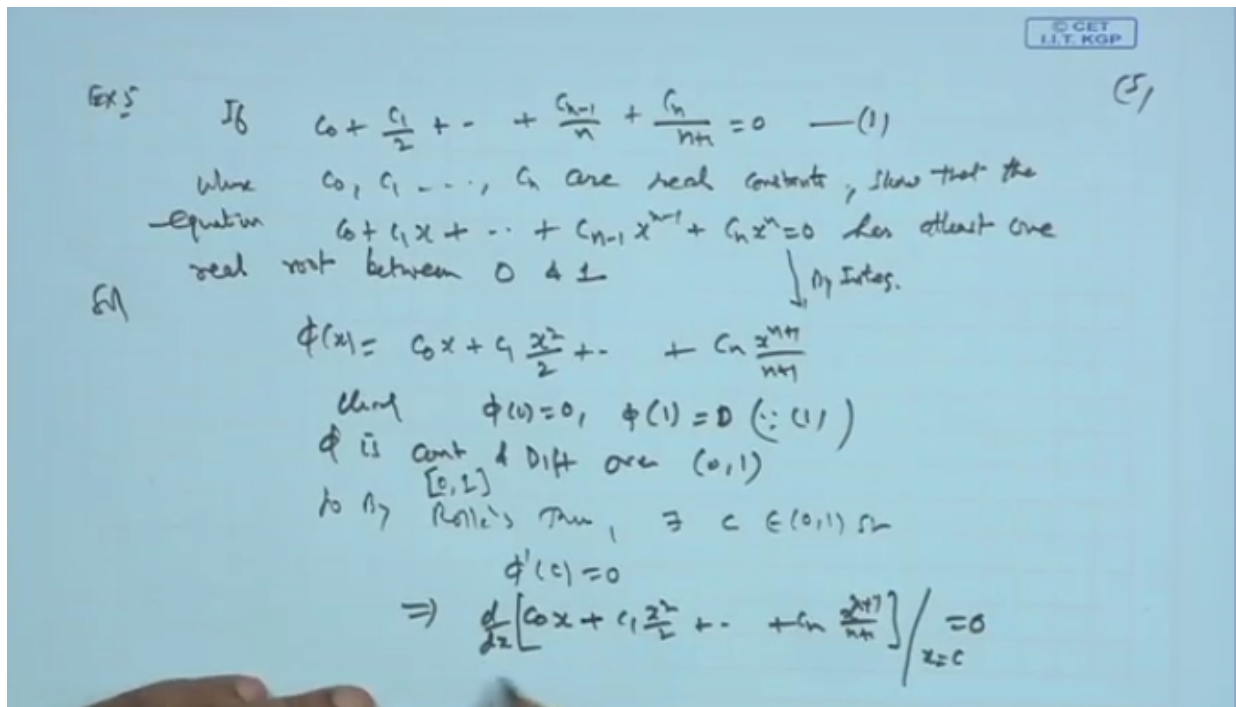 © CET
I.I.T. KGP
(5)
Ex 5 If C₀ + C₁/2 + - + Cₙ₋₁/n + Cₙ/n+1 = 0 —(1)
where C₀, C₁ ---, Cₙ are real constants, show that the
equation C₀ + C₁x + -- + Cₙ₋₁xⁿ⁻¹ + Cₙxⁿ = 0 has atleast one
real root between 0 & 1
↓ By Integ.
Sol
ϕ(x) = C₀x + C₁ x²/2 + - + Cₙ xⁿ⁺¹/n+1
ϕ(0) = 0, ϕ(1) = 0 (∵ (1))
ϕ is cont & Diff over (0,1)
[0,1]
So By Rolle's Thm, ∃ c ∈ (0,1) st
ϕ'(c) = 0
⇒ d/dx [C₀x + C₁ x²/2 + - + Cₙ xⁿ⁺¹/n+1] / x=c = 0